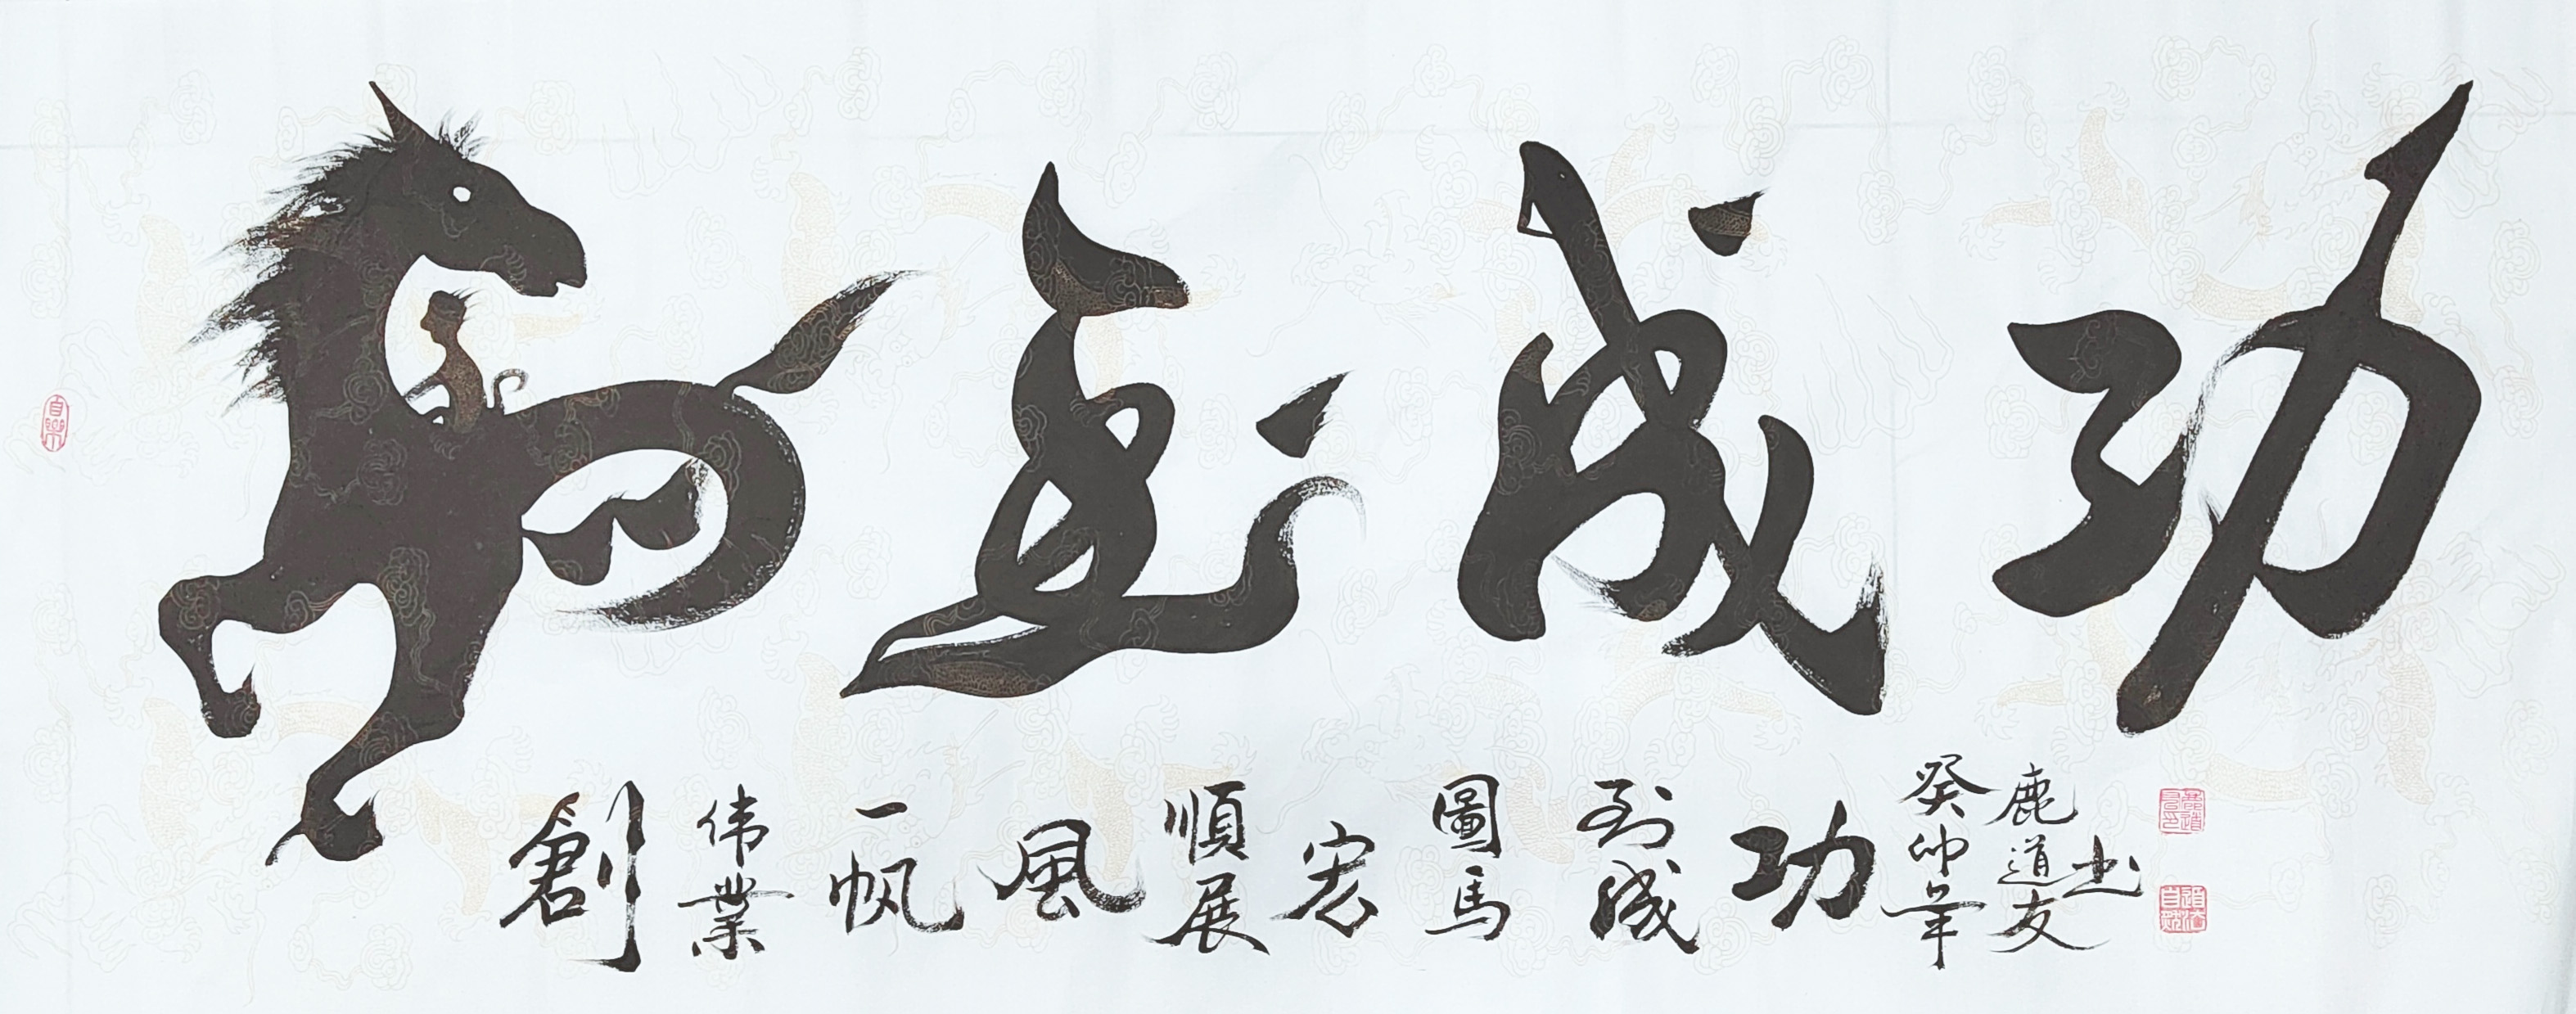 馬到成功
創伟業一帆風順展宏圖馬到成功
癸卯年
鹿道友
书